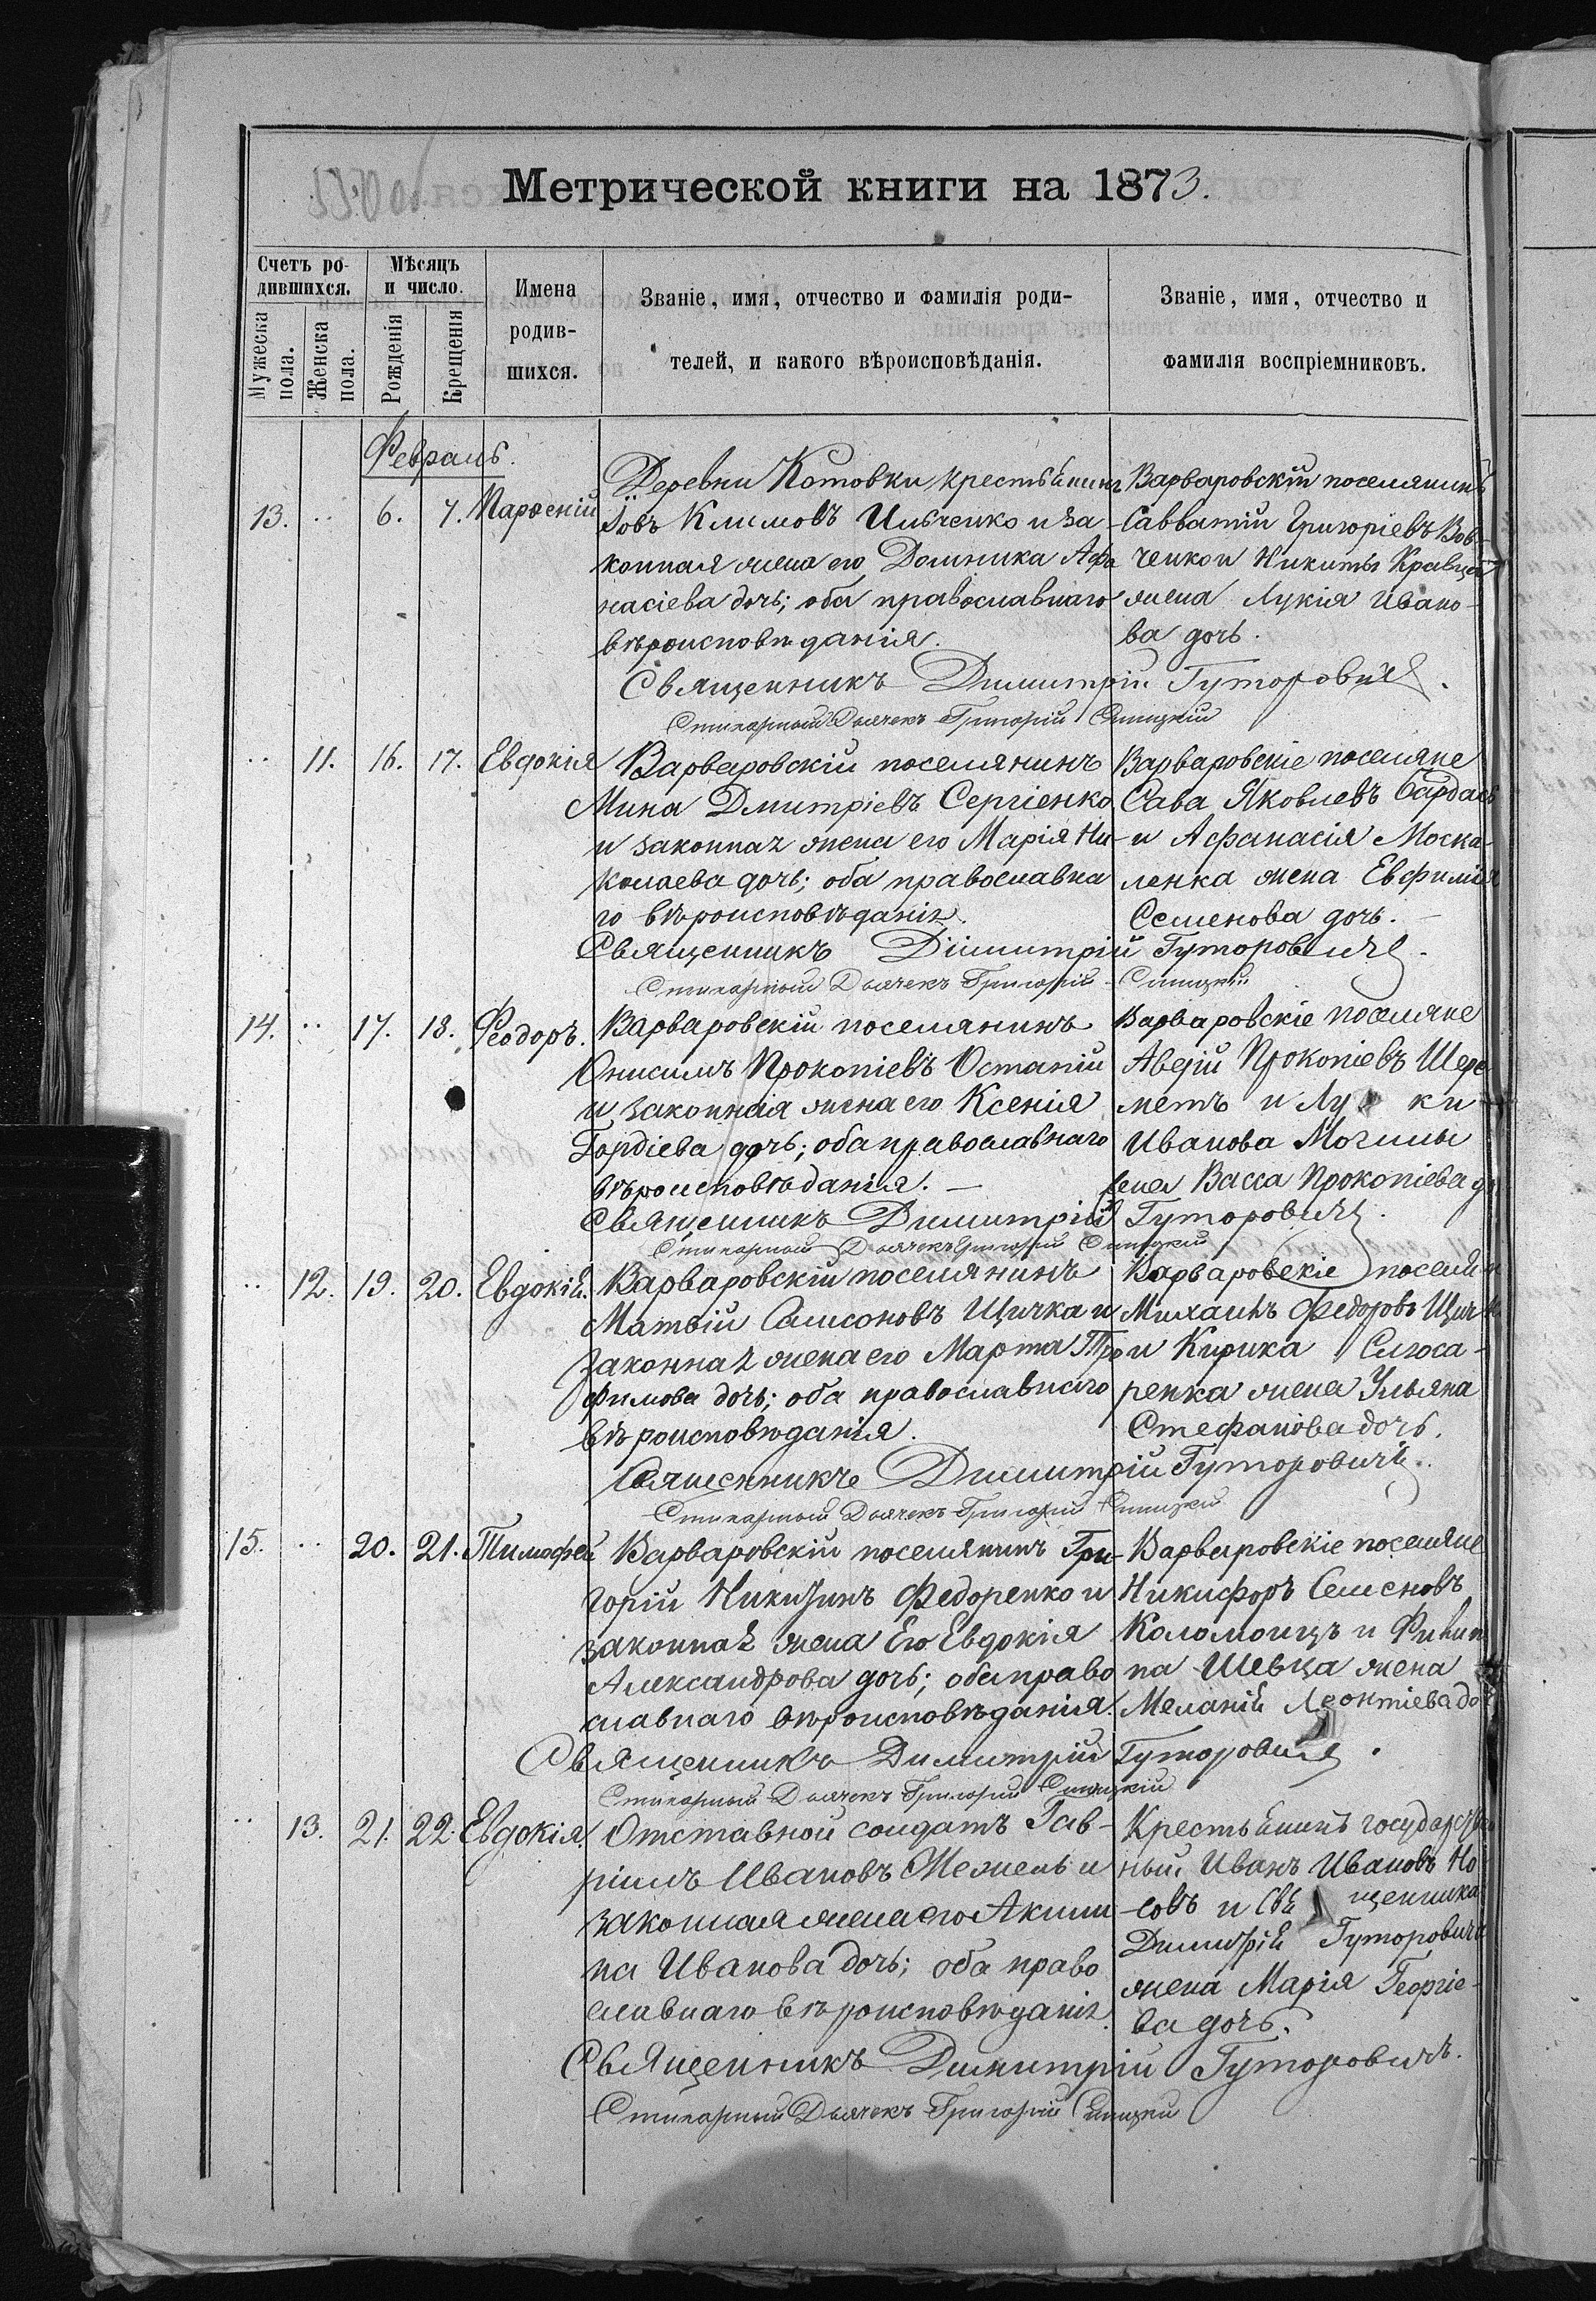 Метрической книги на 1873.
Счетъ ро-
дившихся.
Мужеска
пола.
Женска
пола.
Мѣсяцъ
и число.
Рожденія
Крещенія
Имена
родив-
шихся.
Званіе, имя, отчество и фамилія роди-
телей, и какого вѣроисповѣданія.
Званіе, имя, отчество и
фамилія воспріемниковъ.
Февраль.
13. .. 6. 7. Парѳеній
Деревни Котовки крестьянинъ
Іовъ Климовъ Ильченко и за-
конная жена его Домника Афа
насіева дочь; оба православнаго
вѣроисповѣданія.
Варваровскій поселянинъ
Савватій Григоріевъ Вов-
ченко и Никиты Кравца
жена Лукія Ивано-
ва дочь.
Священникъ Димитрій Гуторовичъ.
Стихарный Дьячекъ Григорій Синицкій
.. 11. 16. 17. Евдокія
Варваровскій поселянинъ
Мина Дмитріевъ Сергіенко
и законная жена его Марія Ни-
колаева дочь; оба православна
го вѣроисповѣданія.
Варваровскіе поселяне
Сава Яковлевъ Бардась
и Афанасія Моска-
ленка жена Евфимія
Семенова дочь.
Священникъ Діимитрій Гуторовичъ.
Стихарный Дьячекъ Григорій Синицкій
14. .. 17. 18. Феодоръ.
Варваровскій поселянинъ
Онисимъ Прокопіевъ Остапій
и законная жена его Ксенія
Гордіева дочь; оба православнаго
вѣроисповѣданія. —
Варваровскіе поселяне
Аверій Прокопіевъ Шере
метъ и Лу ки
Иванова Могилы
жена Васса Прокопіева до
Священникъ Димитрій Гуторовичъ.
Стихарный Дьячекъ Григорій Синицкій
.. 12. 19. 20. Евдокія.
Варваровскій поселянинъ
Матвій Самсоновъ Щичка и
законная жена его Марта Тро
фимова дочь; оба православнаго
вѣроисповѣданія.
Варваровскіе поселян
Михаилъ Федоровъ Щич
и Кирика Слюса-
ренка жена Ульяна
Стефанова дочь.
Священникъ Димитрій Гуторовичъ.
Стихарный Дьячекъ Григорій Синицкій
15. .. 20. 21. Тимофей
Варваровскій поселянинъ Гри-
горій Никитинъ Федоренко и
законная жена Его Евдокія
Александрова дочь; оба право
славнаго вѣроисповѣданія.
Варваровскіе поселяне
Никифоръ Семеновъ
Коломоицъ и Филип
па Шевца жена
Меланія Леонтіева до
Священникъ Димитрій Гуторовичъ.
Стихарный Дьячекъ Григорій Синицкій
.. 13. 21. 22. Евдокія.
Отставной солдатъ Гав-
ріилъ Ивановъ Межень и
законная жена его Акили
на Иванова дочь; оба право
славнаго вѣроисповѣданія.
Крестьянинъ государствен
ный Иванъ Ивановъ Но
совъ и Свя щенника
Димитрія Гуторовича
жена Марія Георгіе-
ва дочь.
Священникъ Димитрій Гуторовичъ.
Стихарный Дьячекъ Григорій Синицкій